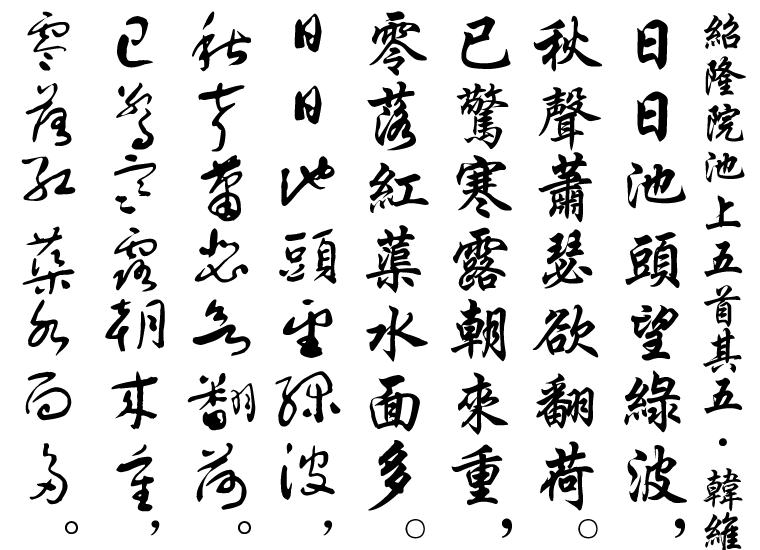 紹隆院池上五首其五・韓維
日日池頭望綠波，
秋聲蕭瑟欲翻荷。
已驚寒露朝來重，
零落紅蕖水面多。
日日池頭望綠波，
秋聲蕭瑟欲翻荷。
已驚寒露朝來重，
零落紅蕖水面多。